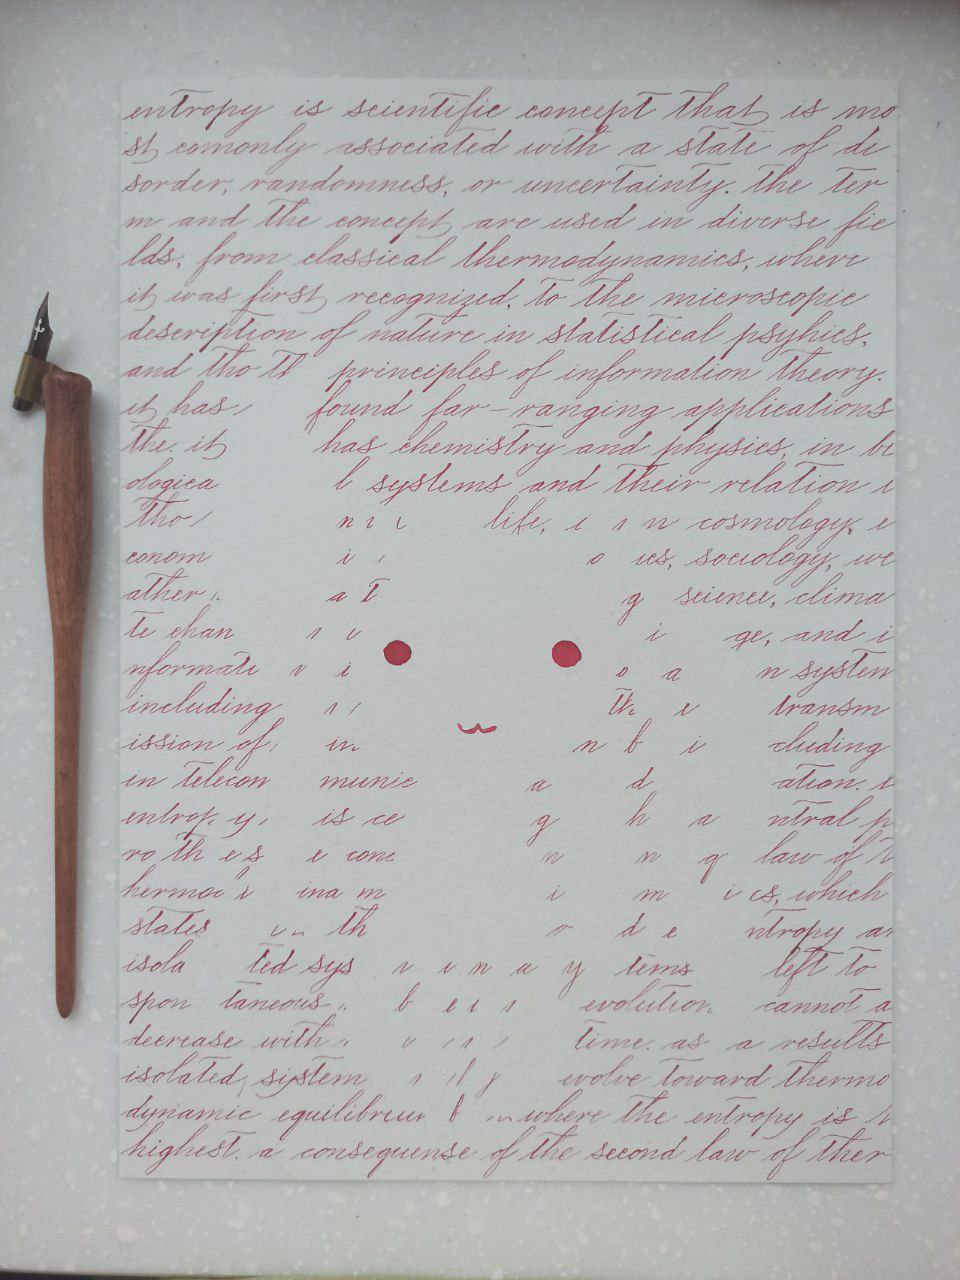 entropy is scientific concept that is mo
st comonly associated with a state of di
sorder, randomness, or uncertainty. the ter
m and the concept are used in diverse fie
lds, from classical thermodynamics, where
it was first recognized, to the microscopic
description of nature in statistical psyhics,
and tho th principles of information theory.
it has, found far-ranging applications
the. it has chemistry and physics, in bi
ologica l systems and their relation i
tho life, i n cosmology, e
conom i o ics, sociology, we
ather a t g science, clima
te chan i ge, and i
nformati v i o a n system
including the transm
ission of in n b i cluding
in telecon munic a d ation. i
entrop y, is ce g h a ntral p
ro th e s e conc n n g law of t
hermod i ina m i m i cs, which
states th d e ntropy a
isola ted sys tems left to
spon taneous b e evolution cannot a
decrease with time. as a results
isolated, sistem evolve toward thermo
dynamic equilibriu where the entropy is
highest. a consequense of the second law of ther